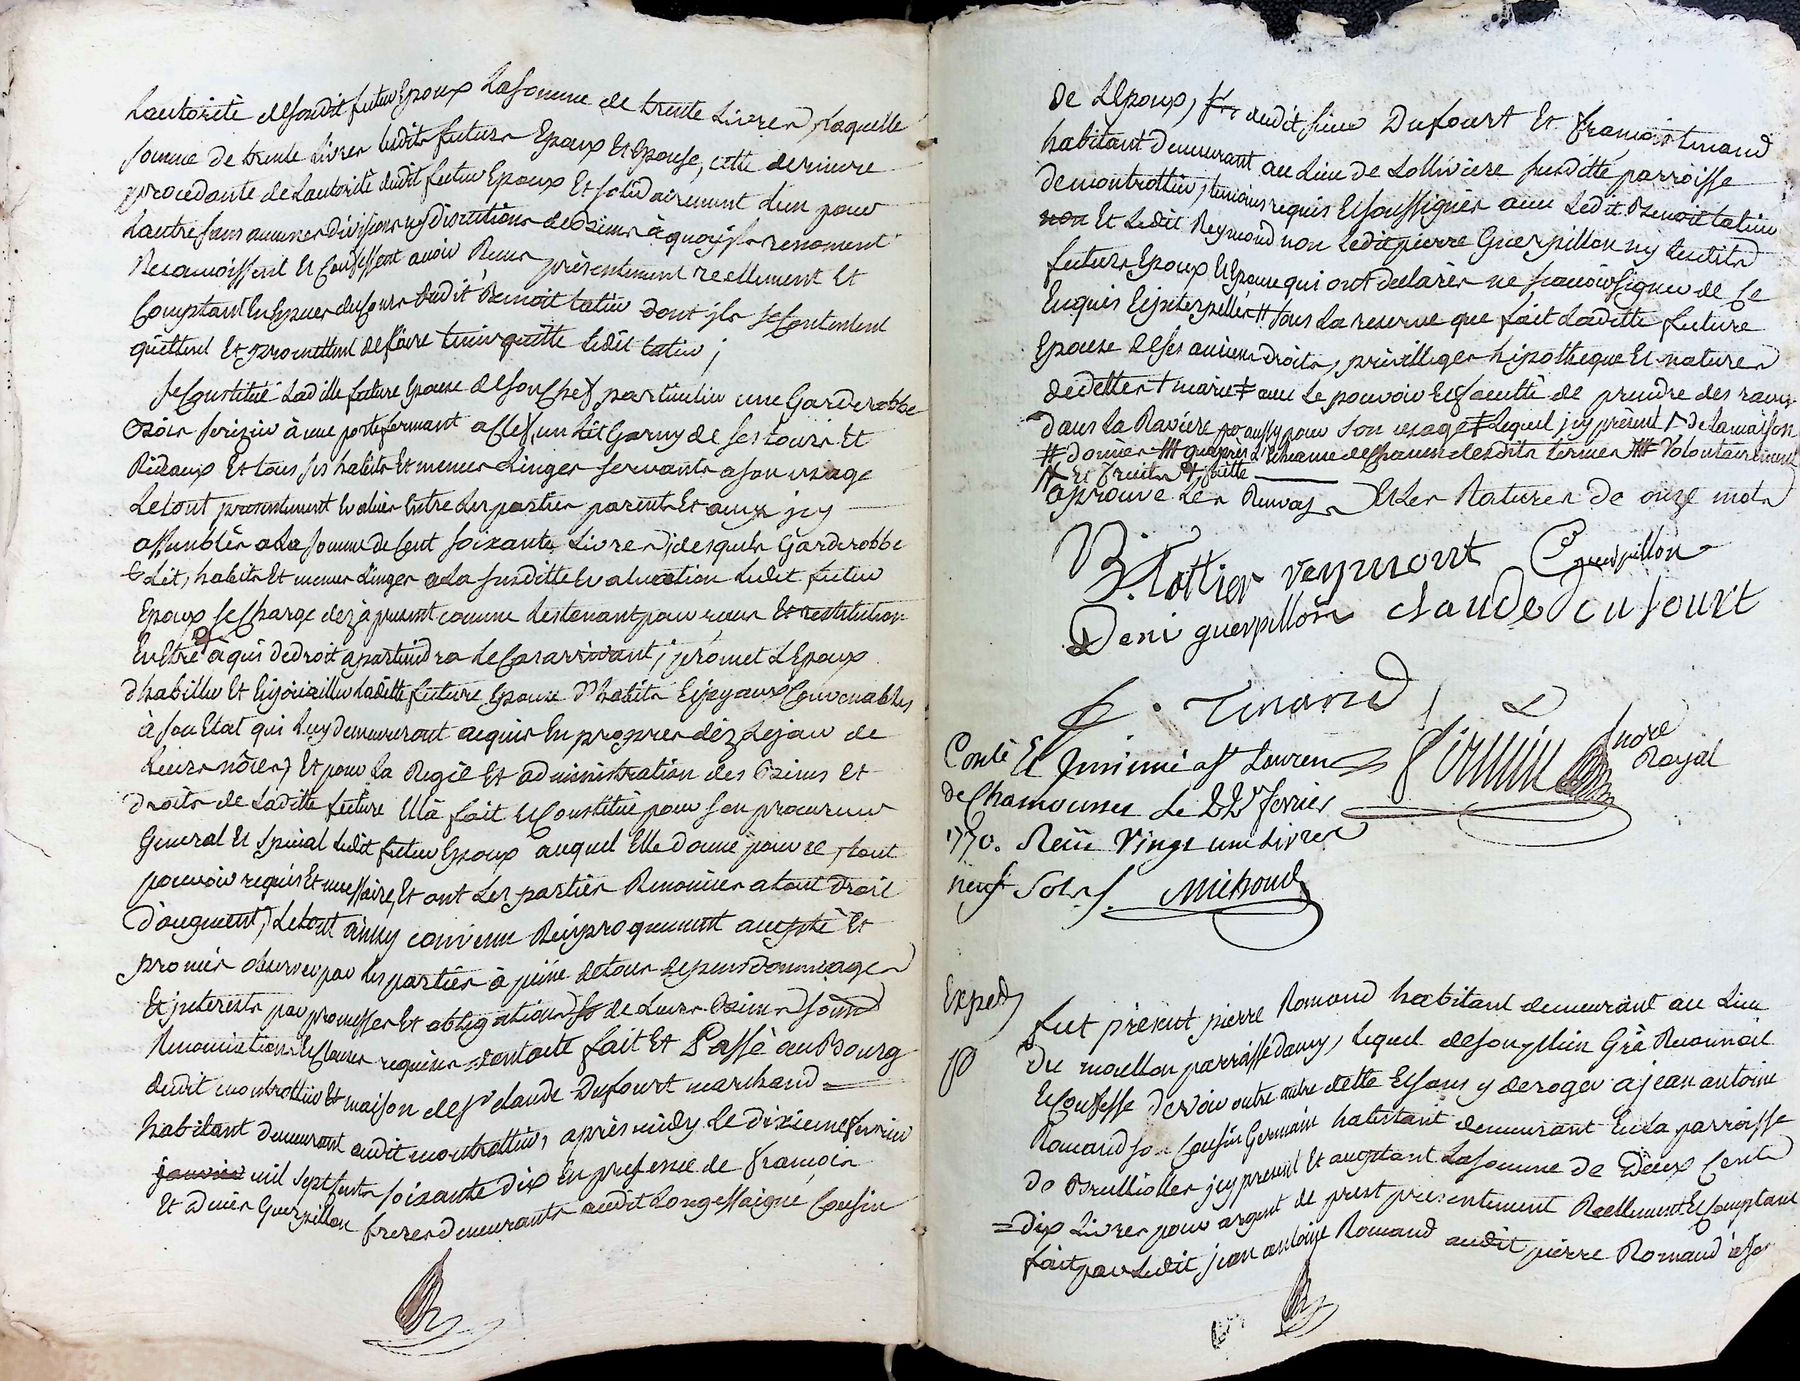 Lautorité desondit futur Epoux Lasomme de trente Livres, Laquelle
somme de trente Livres lesdits futurs Epoux Et Epouse, cette derniere
procedante de Lautorité dudit futur Epoux Et solidairement Lun pour
Lautre sans aucunes divisions ny discutions de biens à quoy jls renoncent
Reconnoissent Et Confessent avoir Reçus présentement reellement Et
Comptant En Especes du Cours dudit Benoit tatin dont jls se Contentent
quittent Et promettent de faire tenir quitte Ledit tatin;
se Constitue Ladille future Epouse de son Chef particulier une Garderobbe
bois serizier à une porte fermant a Clef, un Lit Garny de ses tours Et
Rideaux Et tous ses habits Et menus Linges servants a son usage
Le tout presentement Evalué Entre Les parties parents Et amys jcy
assemblés a La somme de Cent soixante Livres, desquels Garderobbe
Lit, habits Et menus Linges a La susditte Evaluation Ledit futur
Epoux se Charge dez à present comme Les tenant pour reçus Et restitution
En Etre a qui de droit apartiendra Le Cas arrivant, promet L'Epoux
d'habiller Et Enjoüailler Laditte future Epouse D'habits Et joyaux Convenables
à son Etat qui Luy demeureront acquis En propres dez Le jour de
Leurs nôces, Et pour La Regie Et administration des biens Et
droits de Laditte future Ella fait Et Constitué pour son procureur
General Et special Ledit futur Epoux auquel Elle donne pour ce, tout
pouvoir requis Et necessaire, Et ont Les parties Renoncées a tout Droit
D'augment, Le tout ainsy convenu Reciproquement accepté Et
promis observer par Les parties à peine de tous depens Dommages
Et jnterests par promesses Et obligations de Leurs biens soumis
Renonciations Et Clauses requises dont acte fait Et Passé au Bourg
dudit montrottier Et maison de Sr Claude Dufourt marchand
habitant demeurant audit montrottier, après midy Le dixieme fevrier
janvier mil sept Cents soixante dix En presence de françois
Et Denis Guerpillon freres demeurants audit Longessaigne Cousin
de L'Epoux, dudit sieur Dufourt Et françois tinand
habitant demeurant au Lieu de Lollivière susditte parroisse
de montrottier, temoins requis Et soussignés avec Ledit Benoit tatin
non Et Ledit Reymond non Ledit pierre Guerpillon ny Lesdits
futurs Epoux Et Epouse qui ont declarés ne sçavoir signer de Ce
Enquis Et jnterpellés # sous La reserve que fait Laditte future
Epouse de ses anciens droits, privilleges hipotheque Et nature
de dettes + mairie ‡ avec Le pouvoir Et faculté de prendre des raves
dans La Raviere pr aussy pour son usage ‡ Lequel jcy présent de La maison
# donnée ### quaprès L'Echeance de Chacun desdits termes ### volontairement
# Et fruits # fiette
aprouvé Les Renvoys Et Les Ratures De onze mots
B. tattier reymont Guerpillon
Deni guerpillon claude dufourt
f. Tinand
Conté Et Jnsinué a St Laurent
de Chamousset Le 22e fevrier
1770. Reçu Vingt une Livres
neuf Sols. Michoud
Firmin nore Royal
Exped
Fut présent pierre Romand habitant demeurant au Lieu
du moullon parroisse Dancy, Lequel de son plein Gré Reconnoit
Et Confesse devoir outre autre dette Et sans y deroger a jean antoine
Romand son Cousin Germain habitant demeurant En La parroisse
de Brulliolles jcy present Et acceptant La somme de Deux Cents
dix Livres pour argent de prest presentement Reellement Et Comptant
fait par Ledit jean antoine Romand audit pierre Romand a son